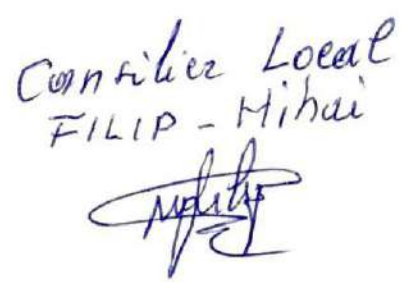 Consilier Local
FILIP - Mihai